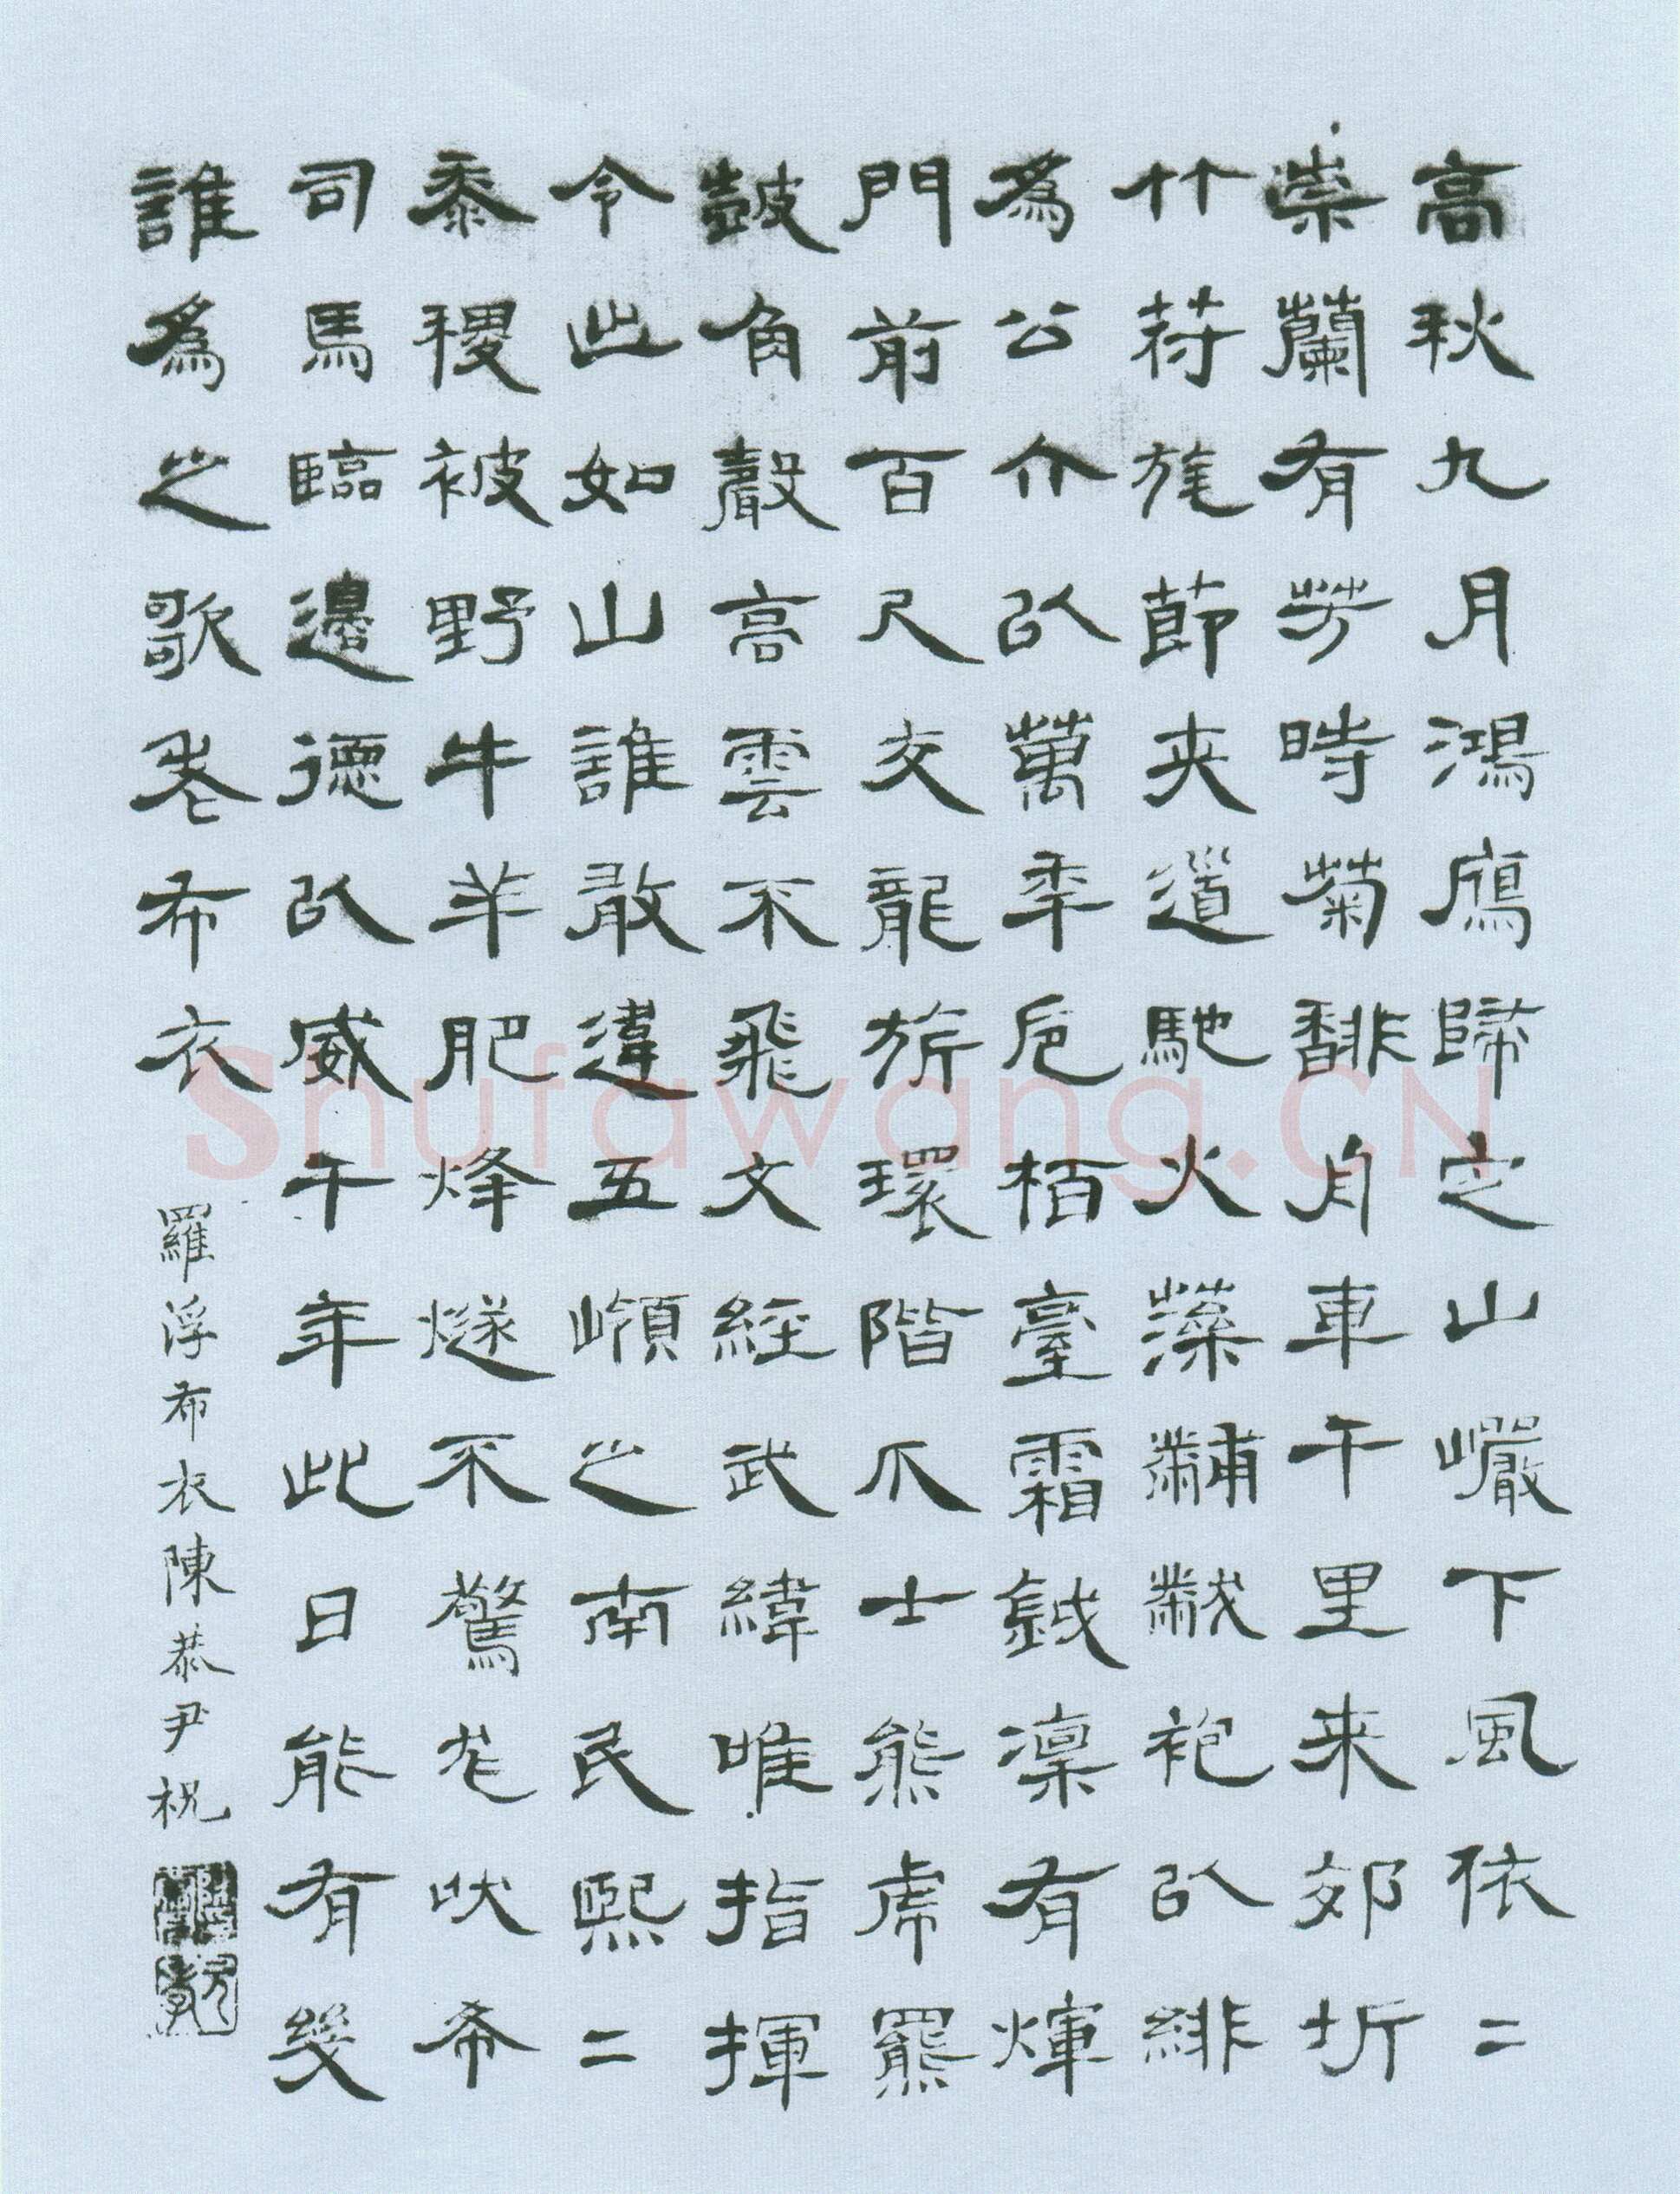 高秋九月鴻鴈歸定山巖下風依二
崇蘭有芳時菊馡舟車千里来郊圻
竹苻旄節夾道馳火藻黼黻袍以緋
為公介以萬季卮栢臺霜鉞凜有煇
門前百尺交龍旂環階爪士熊虎羆
鼓角聲高雲不飛文經武緯唯指揮
令出如山誰敢違五嶺之南民熙二
黍稷被野牛羊肥烽燧不驚尨吠希
司馬臨邊德以威千年此日能有幾
誰為之歌老布衣
羅浮布衣陳恭尹祝
Shufawang.CN